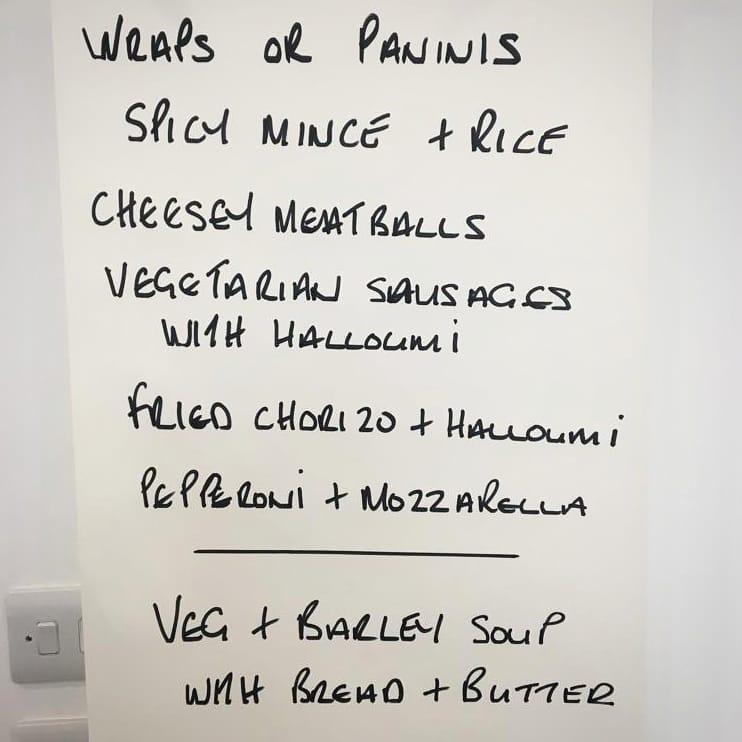 WRAPS OR PANINIS
SPICY MINCE + RICE
CHEESEY MEATBALLS
VEGETARIAN SAUSAGES
WITH HALLOUMI
FRIED CHORIZO + HALLOUMI
PEPPERONI + MOZZARELLA
VEG + BARLEY SOUP
WITH BREAD + BUTTER